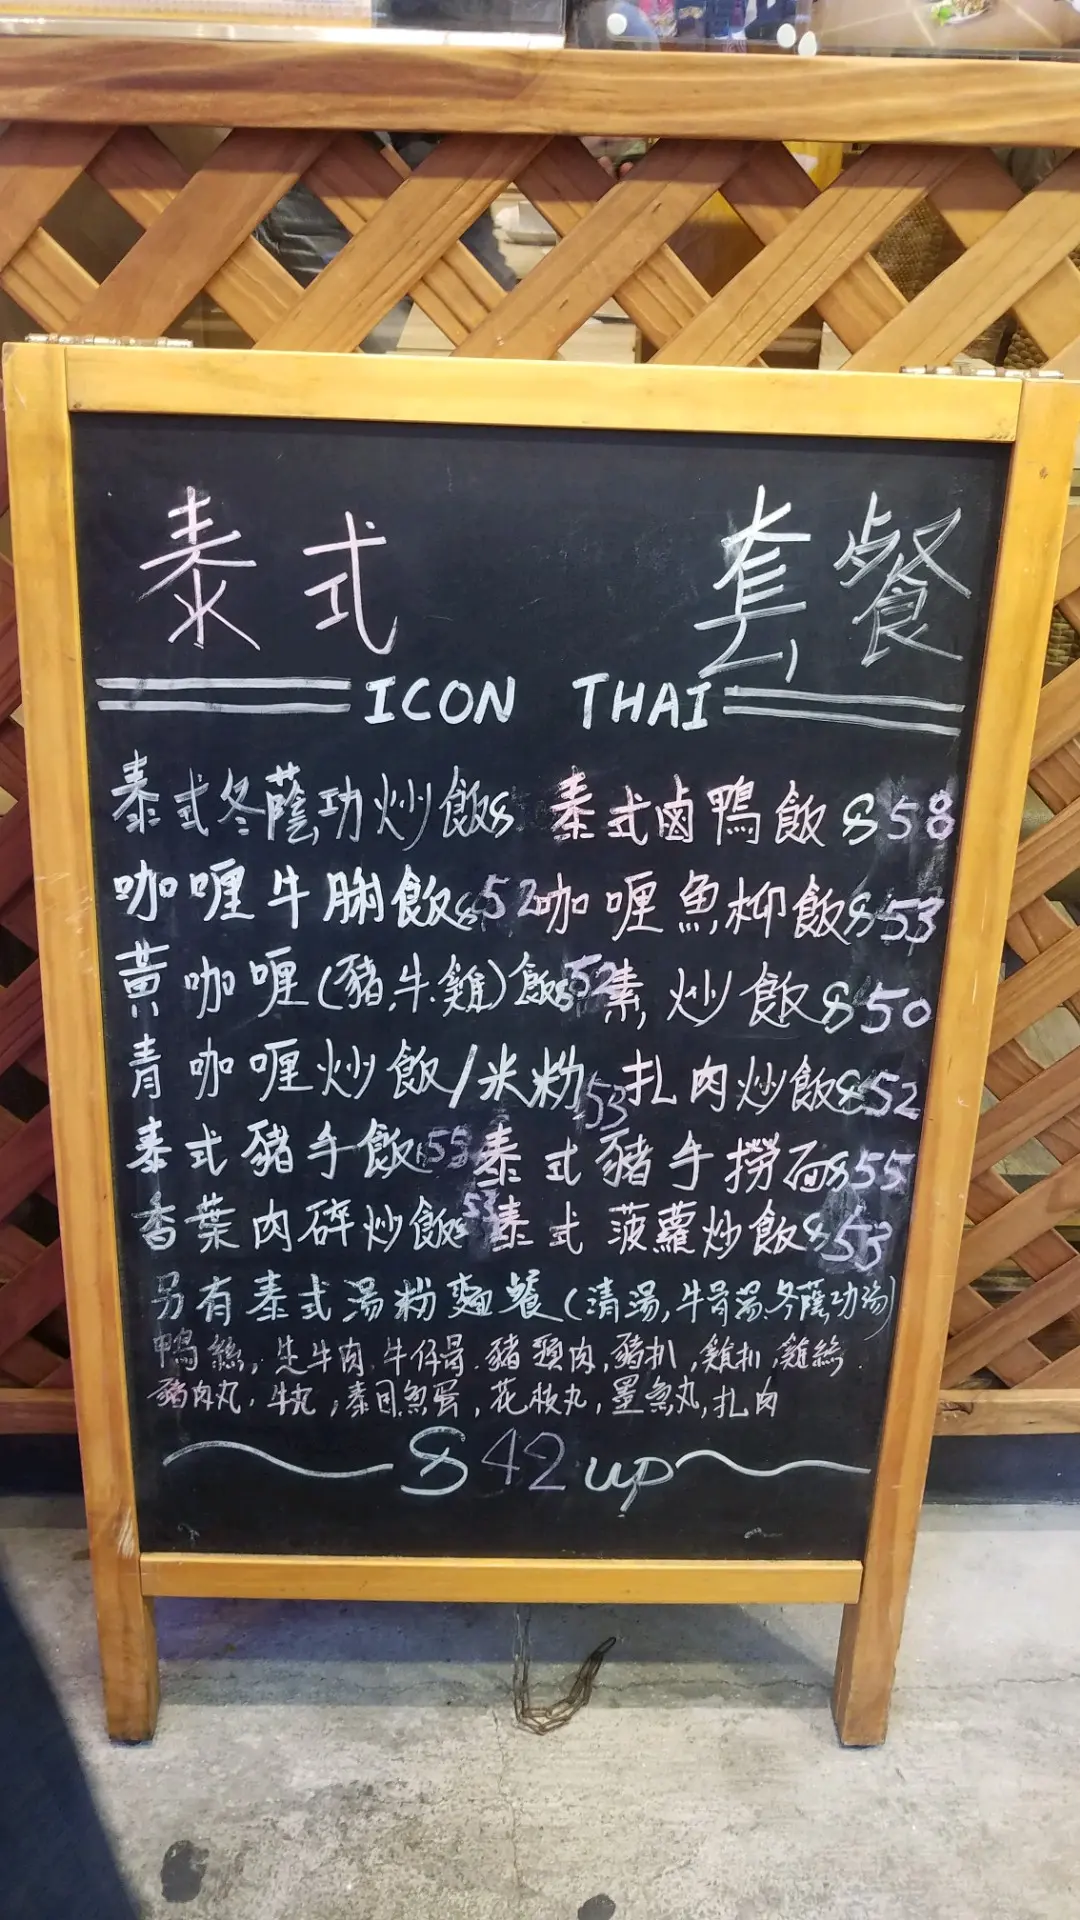 泰式 套餐
ICON THAI
泰式冬蔭功炒飯$ 泰式鹵鴨飯$58
咖喱牛脷飯$52 咖喱魚柳飯$53
黃咖喱(豬.牛.雞)飯$52 素炒飯$50
青咖喱炒飯/米粉53 扎肉炒飯$52
泰式豬手飯$55 泰式豬手撈面$55
香葉肉碎炒飯$53 泰式菠蘿炒飯$53
另有泰式湯粉麵餐(清湯,牛骨湯.冬蔭功湯)
鴨絲,生牛肉.牛仔骨.豬頸肉,豬扒,雞扒,雞絲.
豬肉丸,牛丸,泰国魚蛋,花枝丸,墨魚丸,扎肉
$42up